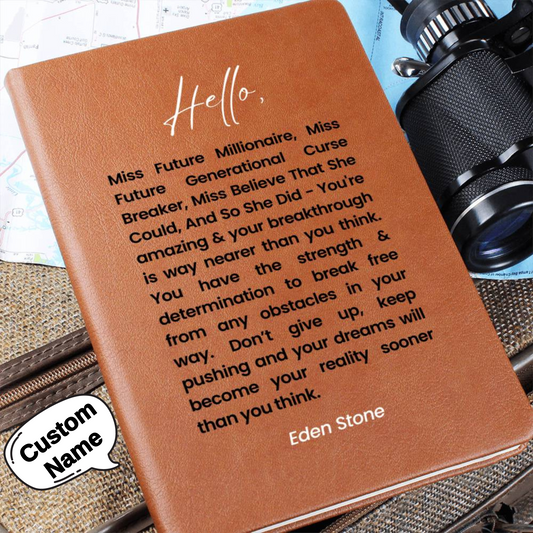 Hello,
Miss Future Millionaire, Miss
Future Generational Curse
Breaker, Miss Believe That She
Could, And So She Did - You're
amazing & your breakthrough
is way nearer than you think.
You have the strength &
determination to break free
from any obstacles in your
way. Don't give up, keep
pushing and your dreams will
become your reality sooner
than you think.
Eden Stone
Custom
Name